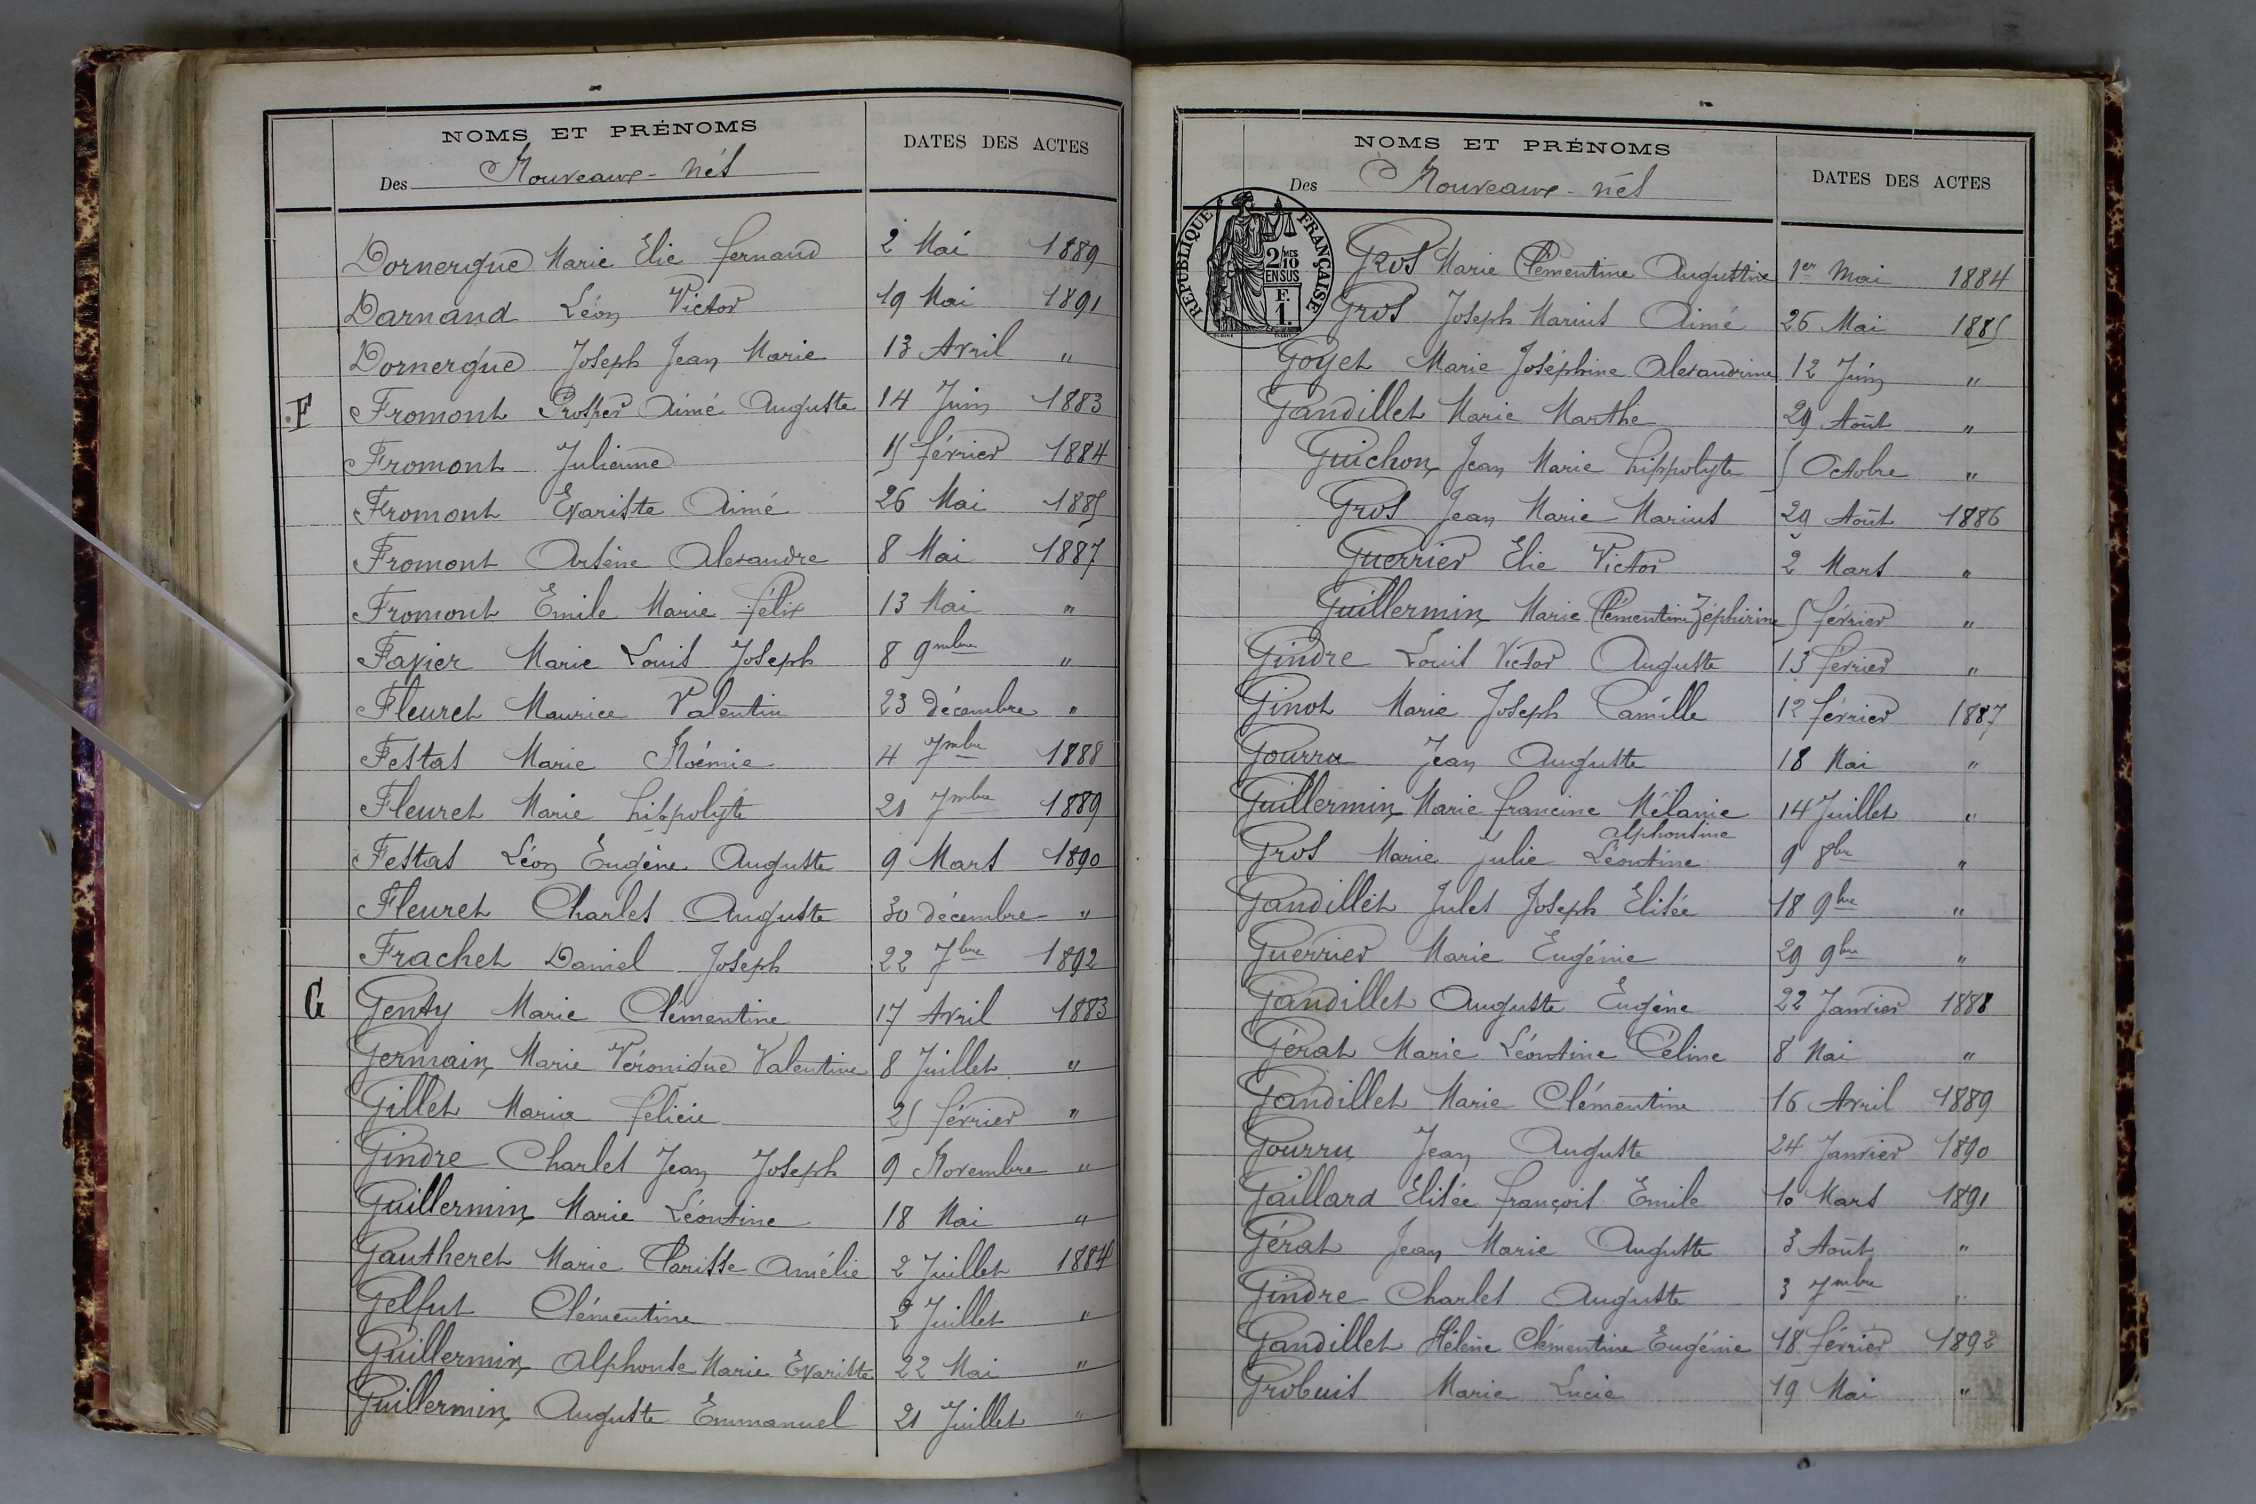 NOMS ET PRÉNOMS
DATES DES ACTES
Des Nouveaux-nés
Dornergue Marie Elie fernand 2 Mai 1889
Darnand Léon Victor 19 Mai 1891
Dornergue Joseph Jean Marie 13 Avril "
F Fromont Prosper Aimé Auguste 14 Juin 1883
Fromont Julienne 15 février 1884
Fromont Evariste Aimé 26 Mai 1885
Fromont Arsène Alexandre 8 Mai 1887
Fromont Emile Marie félix 13 Mai "
Favier Marie Louis Joseph 8 9mbre "
Fleuret Maurice Valentin 23 décembre "
Festas Marie Noémie 4 7mbre 1888
Fleuret Marie hippolyte 21 7mbre 1889
Festas Léon Eugène Auguste 9 Mars 1890
Fleuret Charles Auguste 30 décembre "
Frachet Daniel Joseph 22 7bre 1892
G Genty Marie Clémentine 17 Avril 1883
Germain Marie Véronique Valentine 8 Juillet "
Gillet Maria félicie 25 février "
Gindre Charles Jean Joseph 9 Novembre "
Guillermin Marie Léontine 18 Mai "
Gautheret Marie Clarisse Amélie 2 Juillet 1884
Gelfut Clémentine 2 Juillet "
Guillermin Alphonse Marie Evariste 22 Mai "
Guillermin Auguste Emmanuel 21 Juillet "
NOMS ET PRÉNOMS
DATES DES ACTES
Des Nouveaux-nés
RÉPUBLIQUE FRANÇAISE
2 MES
10
EN SUS
F.
1.
Gros Marie Clémentine Augustine 1er Mai 1884
Gros Joseph Marius Aimé 26 Mai 1885
Goyet Marie Joséphine Alexandrine 12 Juin "
Gandillet Marie Marthe 29 Août "
Guichon Jean Marie hippolyte 5 Octobre "
Gros Jean Marie Marius 29 Août 1886
Guerrier Elie Victor 2 Mars "
Guillermin Marie Clémentine Zéphirine 5 février "
Gindre Louis Victor Auguste 13 février "
Ginot Marie Joseph Camille 12 février 1887
Gourru Jean Auguste 18 Mai "
Guillermin Marie francine Mélanie 14 Juillet "
alphonsine
Gros Marie Julie Léontine 9 8bre "
Gandillet Jules Joseph Elisée 18 9bre "
Guerrier Marie Eugénie 29 9bre "
Gandillet Auguste Eugène 22 Janvier 1888
Gérat Marie Léontine Céline 8 Mai "
Gandillet Marie Clémentine 16 Avril 1889
Gourru Jean Auguste 24 Janvier 1890
Gaillard Elisée françois Emile 10 Mars 1891
Gérat Jean Marie Auguste 3 Août "
Gindre Charles Auguste 3 7mbre "
Gandillet Hélène Clémentine Eugénie 18 février 1892
Grobuis Marie Lucie 19 Mai "